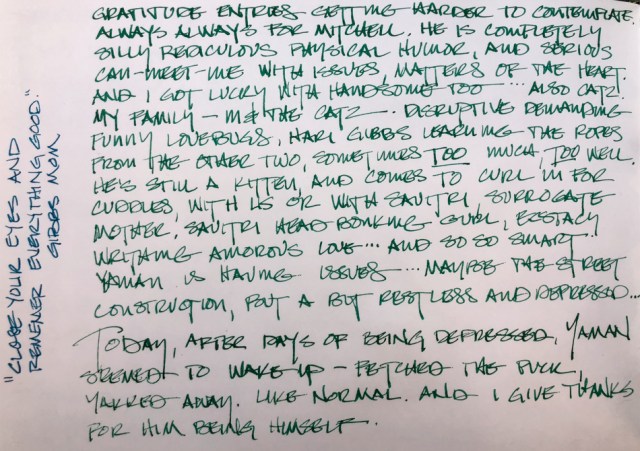 GRATITUDE ENTRIES GETTING HARDER TO CONTEMPLATE.
ALWAYS ALWAYS FOR MITCHELL. HE IS COMPLETELY
SILLY REDICULOUS PHYSICAL HUMOR, AND SERIOUS
CAN-MEET-ME WITH ISSUES, MATTERS OF THE HEART.
AND I GOT LUCKY WITH HANDSOME TOO ... ALSO CATZ!
MY FAMILY - M & THE CATZ - DISRUPTIVE DEMANDING
FUNNY LOVEBUGS, HARI GIBBS LEARNING THE ROPES
FROM THE OTHER TWO, SOMETIMES TOO MUCH, TOO WELL.
HE'S STILL A KITTEN, AND COMES TO CURL IN FOR
CUDDLES, WITH US OR WITH SAVITRI, SURROGATE
MOTHER. SAVITRI HEAD BONKING GURL, ECSTACY
WRITHING AMOROUS LOVE ... AND SO SO SMART.
YAMAN IS HAVING ISSUES ... MAYBE THE STREET
CONSTRUCTION, BUT A BIT RESTLESS AND DEPRESSED ...
TODAY, AFTER DAYS OF BEING DEPRESSED, YAMAN
SEEMED TO WAKE UP - FETCHED THE PUCK,
YAKKED AWAY. LIKE NORMAL. AND I GIVE THANKS
FOR HIM BEING HIMSELF.
"CLOSE YOUR EYES AND
REMEMER EVERYTHING GOOD."
GIBBS MOM